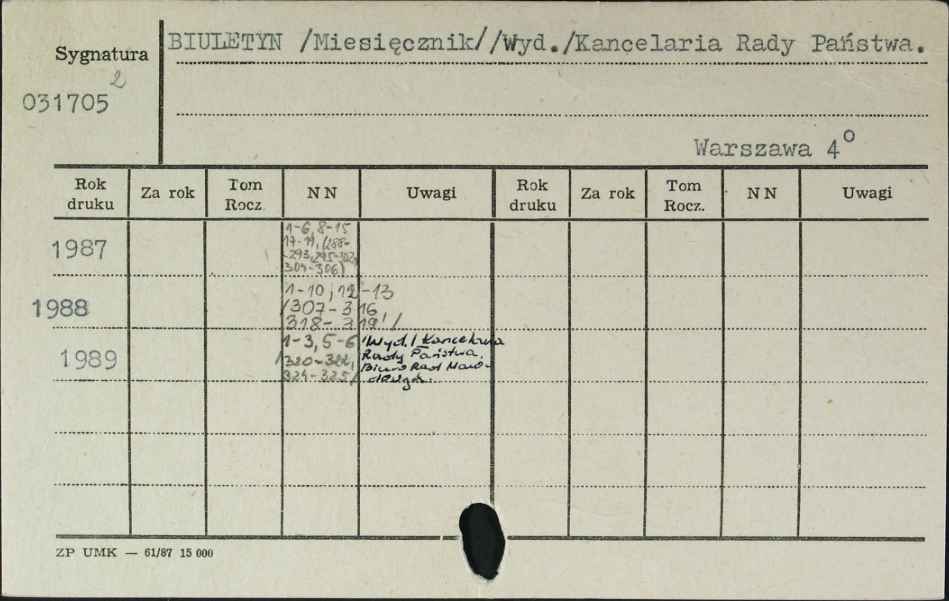 BIULETYN /Miesięcznik//Wyd./Kancelaria Rady Państwa.
Sygnatura
2
031705
Warszawa 4°
Rok druku Za rok Tom Rocz. NN Uwagi Rok druku Za rok Tom Rocz. NN Uwagi
1987 1-6, 8-15
17-19, (288-
-293, 295-302,
304-306)
1988 1-10, 12-13
/307-316
318-319/
1989 1-3, 5-6 /Wyd./ Kancelaria
/320-322, Rady Państwa.
324-325/ Biuro Rad Naro-
dowych.
ZP UMK — 61/87 15 000